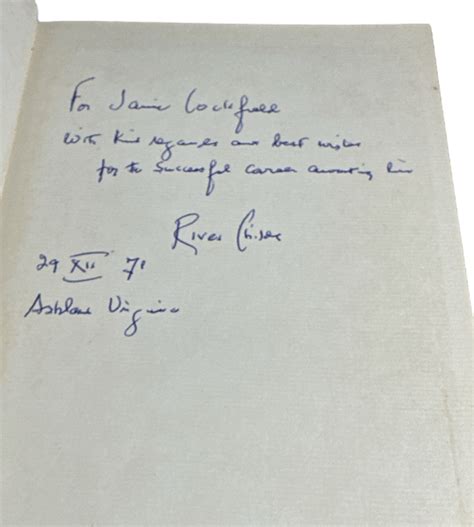 For Jamie Lockfield
with kind regards and best wishes
for the successful career awaiting him
River
29 XII 71
Ashland Virginia